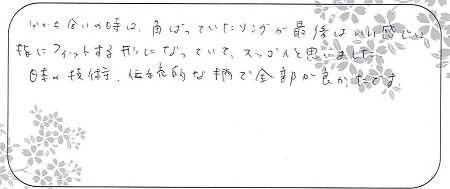 わかち合いの時は、角ばっていたリングが最後はいい感じに
指にフィットする形になっていて、スゴイと思いました。
日本の技術、伝統的な柄で全部が良かったです。